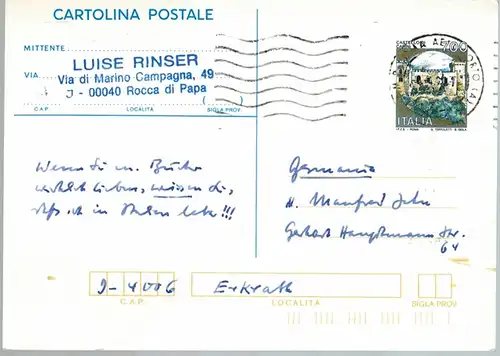 CARTOLINA POSTALE
MITTENTE
LUISE RINSER
VIA
Via di Marino Campagna, 49
J - 00040 Rocca di Papa
C.A.P. LOCALITÀ SIGLA PROV.
ITALIA
Wenn Sie m. Bücher
wirklich lieben, wissen Sie,
daß ich in Italien lebe!!!
Germania
H. Manfred
Gerhart Hauptmann Str.
64
D-4006 Erkrath
C.A.P. LOCALITÀ SIGLA PROV.